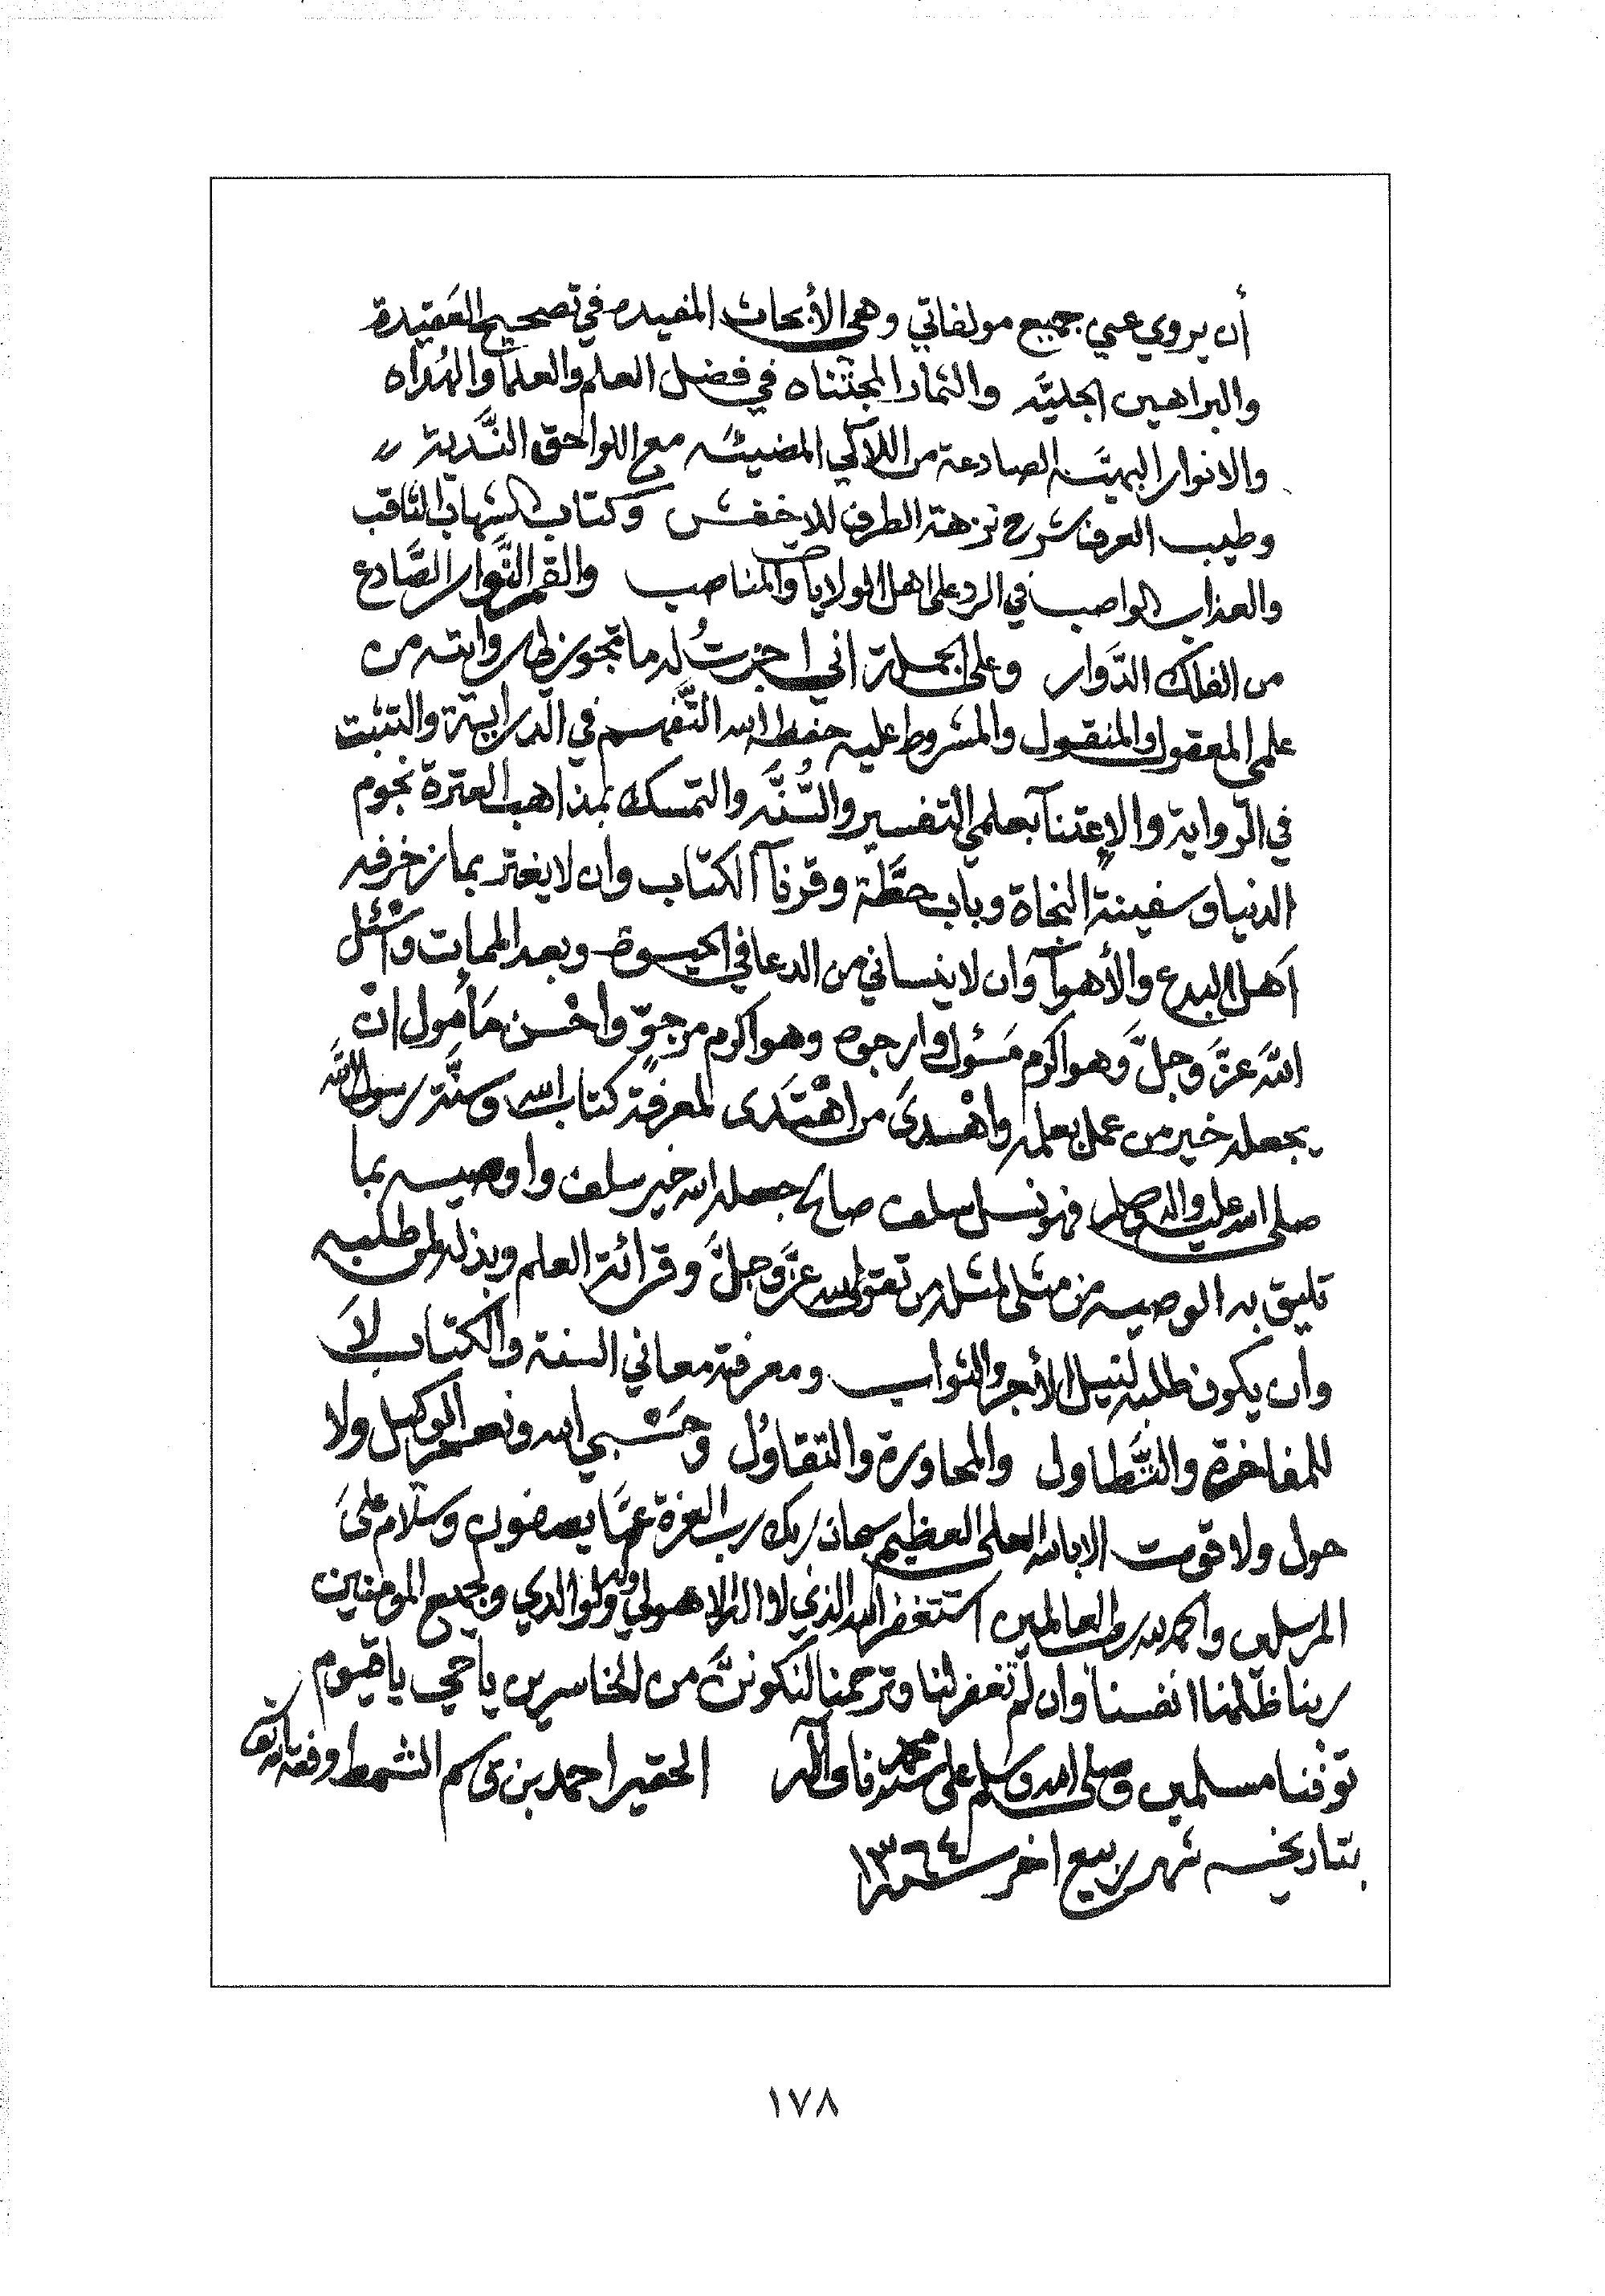 أن يروي عني جميع مولفاتي وهي الأبحاث المفيده في تصحيح العقيدة
والبراهين الجليَّه والثمار المجتناه في فضل العلم والعلمآ والهداه
والانوار البهيَّه الصادعة من اللآلي المضيئه مع اللواحق النَّدية
وطيب العرف شرح نزهة الطرف للاخفش وكتاب الشهاب الثاقب
والعذاب الواصب في الرد على اهل الولايات والمناصب والقمر النَّوار الصَّادع
من الفلك الدَّوار وعلى الجملة اني اجزتُ له ما تجوز لي روايته من
علمي المعقول والمنقول والمشروط عليه حفظه الله التَّفهم في الدراية والتثبت
في الرّواية والإعتنآ بعلمي التفسير والسُّنَّه والتمسك بمذاهب العترة نجوم
الدنيا وسفينة النجاة وباب حطَّة وقرنآ الكتاب وان لا يغتر بما زخرفه
اهل البدع والأهوآ وان لا ينساني من الدعا في الحيوة وبعد الممات وأسْئل
اللهَ عزَّ وجلَّ وهو اكرم مَسئول وارجوه وهو اكرم مرجوّ واحْسن مَأمول انْ
يجعله خير من عمل بعلمه وأهْدىَ من اهْتَدى لمعرفة كتاب الله وسنَّة رسول الله
صلى الله عليه واله وسلم فهو نسل سلف صالح جعله الله خير سلف واوصيه بما
تليق به الوصيه من مثلي لمثله من تقوى الله عزَّ وجلَّ وقرائة العلم وبذله لمن طلبه
وأن يكون طلبه لنيل الأجر والثواب ومعرفة معاني السنة والكتاب لاَ
للمفاخرة والتَّطاول والمحاورة والتقاوُل وحَسْبي الله ونعم الوكيل ولا
حول ولا قوة الا بالله العلي العظيم سبحان ربك رب العزة عمَّا يصفون وسلام علىَ
المرسلين والحمد لله رب العالمين استغفر الله الذي لا اله الا هو لي وله ولوالدي ولجميع المومنين
ربنا ظلمنا انفسنا وان لم تغفر لنا وترحمنا لنكوننَّ من الخاسرين يا حي يا قيوم
توفنا مسلمين وصلى الله وسلم على سيدنا محمد وآله الحقير احمد بن قاسم الشمط وفقه الله
بتاريخه شهر ربيع اخر سنة ١٣٦٤
١٧٨